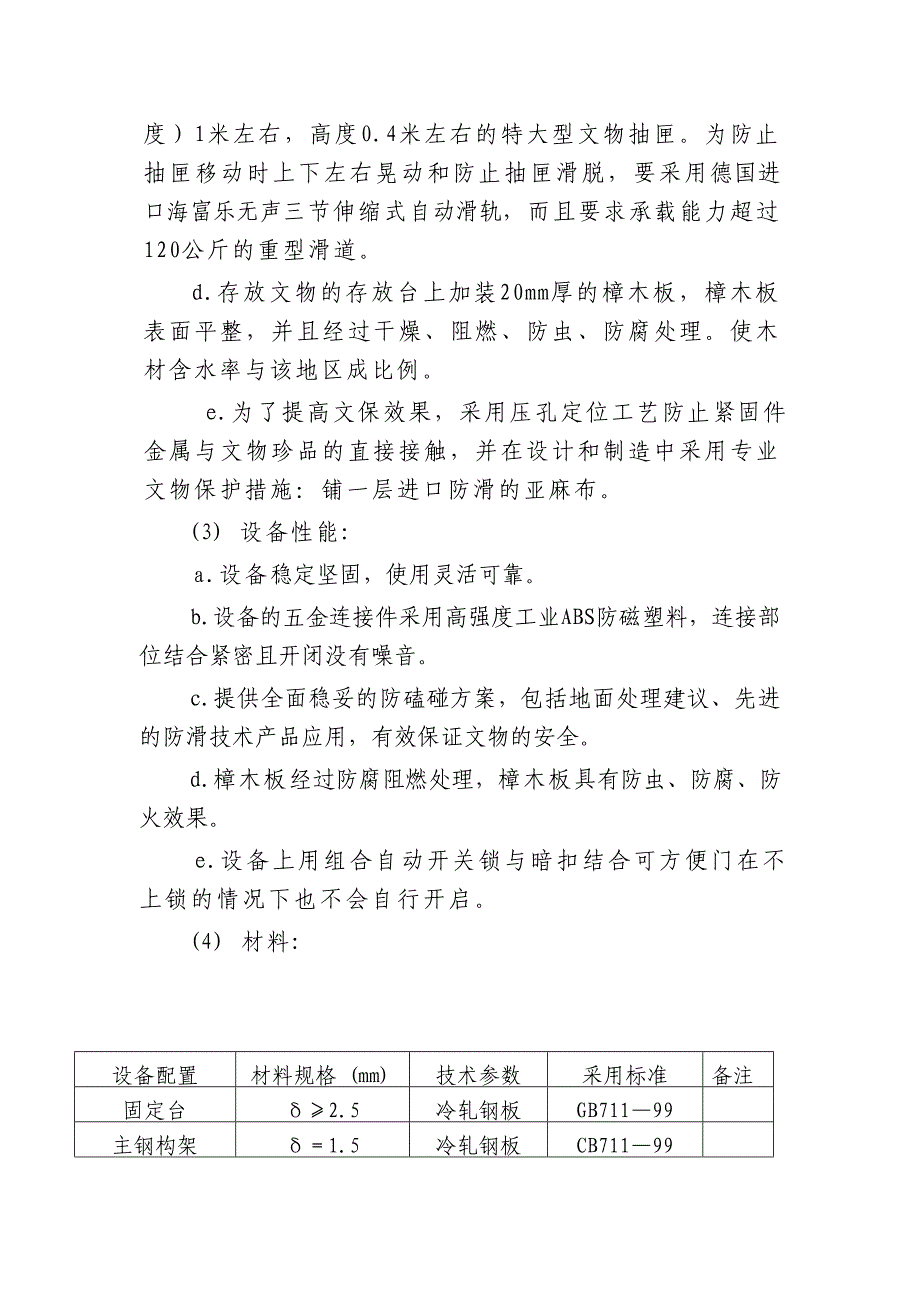 度）1米左右，高度0.4米左右的特大型文物抽匣。为防止
抽匣移动时上下左右晃动和防止抽匣滑脱，要采用德国进
口海富乐无声三节伸缩式自动滑轨，而且要求承载能力超过
120公斤的重型滑道。
d.存放文物的存放台上加装20mm厚的樟木板，樟木板
表面平整，并且经过干燥、阻燃、防虫、防腐处理。使木
材含水率与该地区成比例。
e.为了提高文保效果，采用压孔定位工艺防止紧固件
金属与文物珍品的直接接触，并在设计和制造中采用专业
文物保护措施：铺一层进口防滑的亚麻布。
(3) 设备性能：
a.设备稳定坚固，使用灵活可靠。
b.设备的五金连接件采用高强度工业ABS防磁塑料，连接部
位结合紧密且开闭没有噪音。
c.提供全面稳妥的防磕碰方案，包括地面处理建议、先进
的防滑技术产品应用，有效保证文物的安全。
d.樟木板经过防腐阻燃处理，樟木板具有防虫、防腐、防
火效果。
e.设备上用组合自动开关锁与暗扣结合可方便门在不
上锁的情况下也不会自行开启。
(4) 材料：
设备配置 材料规格 (mm) 技术参数 采用标准 备注
固定台 δ⩾2.5 冷轧钢板 GB711—99
主钢构架 δ=1.5 冷轧钢板 CB711—99